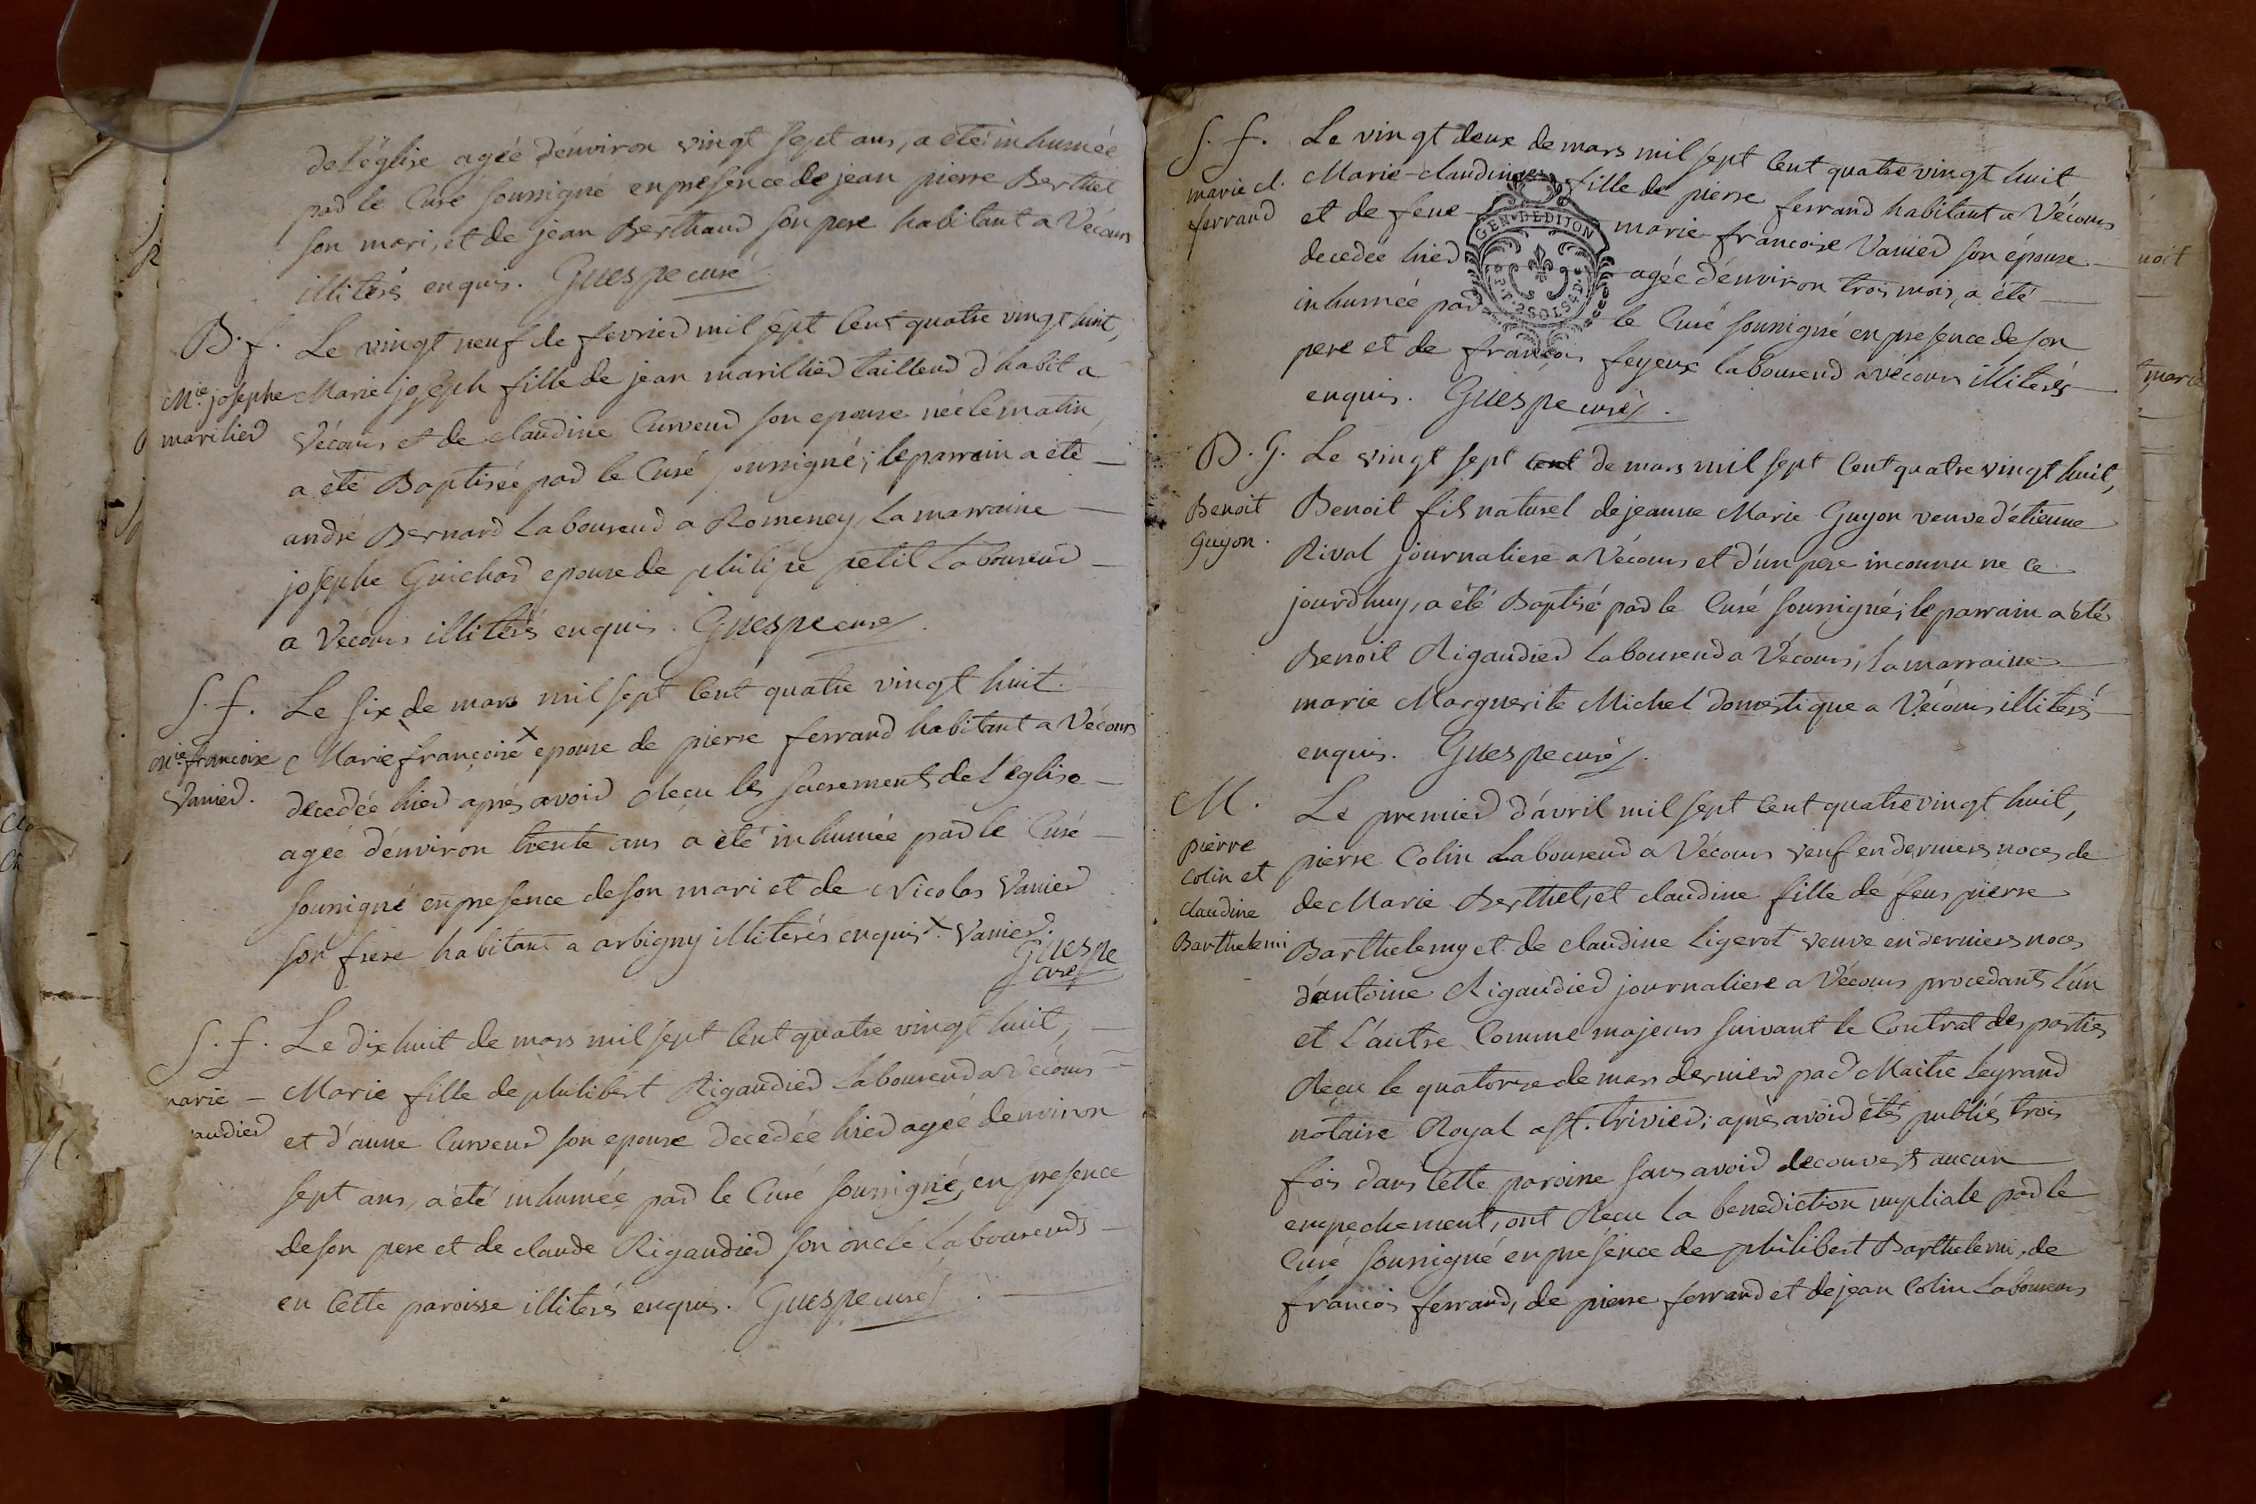 de l'église agée d'environ vingt sept ans, a été inhumée
par le Curé soussigné en presence de jean pierre Berthet
son mari, et de jean Berthaud son pere habitant a Vécours
illiterés enquis. Guespe curé
B. f.
Mie josephe
marilier
Le vingt neuf de fevrier mil sept Cent quatre vingt huit,
Marie joseph fille de jean marillier tailleur d'habit a
Vécours et de claudine Curveur son epouse née le matin,
a été Baptisée par le Curé soussigné; le parrain a été
andré Bernard Laboureur a Romeney, La marraine
josephe Guichar epouse de philipe petit Laboureur
a Vécours illiterés enquis. Guespe curé
S. f.
Mie francoise
Vanier.
Le six de mars mil sept Cent quatre vingt huit
Marie françoise x epouse de pierre ferrand habitant a Vécours
decedée hier aprés avoir Reçu les sacrements de l'église
agée d'environ trente ans a été inhumée par le Curé
soussigné en presence de son mari et de Nicolas Vanier
son frere habitant a arbigny illiterés enquis. x Vanier.
Guespe
curé
S. f.
marie
audier
Le dix huit de mars mil sept Cent quatre vingt huit,
Marie fille de philibert Rigaudier Laboureur a Vécours
et d'anne Curveur son epouse decedée hier agée d'environ
sept ans, a été inhumée par le Curé soussigné, en presence
de son pere et de claude Rigaudier son oncle Laboureurs
en Cette paroisse illiterés enquis. Guespe curé
S. f.
marie cl.
ferrand
Le vingt deux de mars mil sept Cent quatre vingt huit
Marie-claudine fille de pierre ferrand habitant a Vécours
et de feue marie francoise Vanier son épouse
decedée hier agée d'environ trois mois, a été
inhumée par le Curé soussigné en presence de son
pere et de françois feyeux laboureur a Vécours illiterés
enquis. Guespe curé.
GEN. DE DIJON
2 SOLS 4 D.
B. G.
Benoit
Guyon.
Le vingt sept cent de mars mil sept Cent quatre vingt huit,
Benoit fils naturel de jeanne Marie Guyon veuve d'étienne
Rival journaliere a Vécours et d'un pere inconnu né ce
jourdhuy, a été Baptisé par le Curé soussigné; le parrain a été
Benoit Rigaudier Laboureur a Vécours, La marraine
marie Marguerite Michel domestique a Vécours illiterés
enquis. Guespe curé.
M.
pierre
Colin et
claudine
Barthelemi
Le premier d'avril mil sept Cent quatre vingt huit,
pierre Colin Laboureur a Vécours veuf en dernieres noces de
de Marie Berthet, et claudine fille de feus pierre
Barthelemy et de claudine Ligerot veuve en dernieres noces
d'antoine Rigaudier journaliere a Vécours procedants L'un
et L'autre Comme majeurs suivant le Contrat des parties
Reçu le quatorze de mars dernier par Maitre Legrand
notaire Royal a St. trivier; aprés avoir étés publiés trois
fois dans Cette paroisse sans avoir decouvert aucun
empechement, ont Reçu la benediction nuptiale par le
Curé soussigné en presence de philibert Barthelemi, de
francois ferrand, de pierre ferrand et de jean Colin Laboureurs